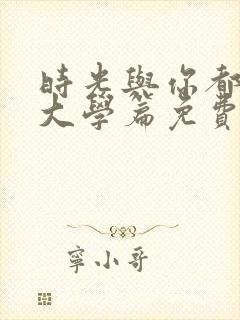 時光與你都
大學篇免費
寧小哥